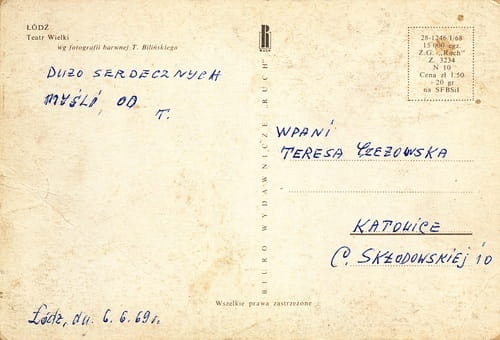 ŁÓDŹ
Teatr Wielki
wg fotografii barwnej T. Bilińskiego
DUŻO SERDECZNYCH
MYŚLI OD
T.
Łódz, dn. 6. 6. 69 r.
BIURO WYDAWNICZE „RUCH"
R
28-1246/1/68
15 000 egz.
Z.G. „Ruch"
Z. 3234
N 10
Cena zł 1.50
+20 gr
na SFBSiI
WPANI
TERESA CZEZOWSKA
KATOWICE
C. SKŁODOWSKIEJ 10
Wszelkie prawa zastrzeżone